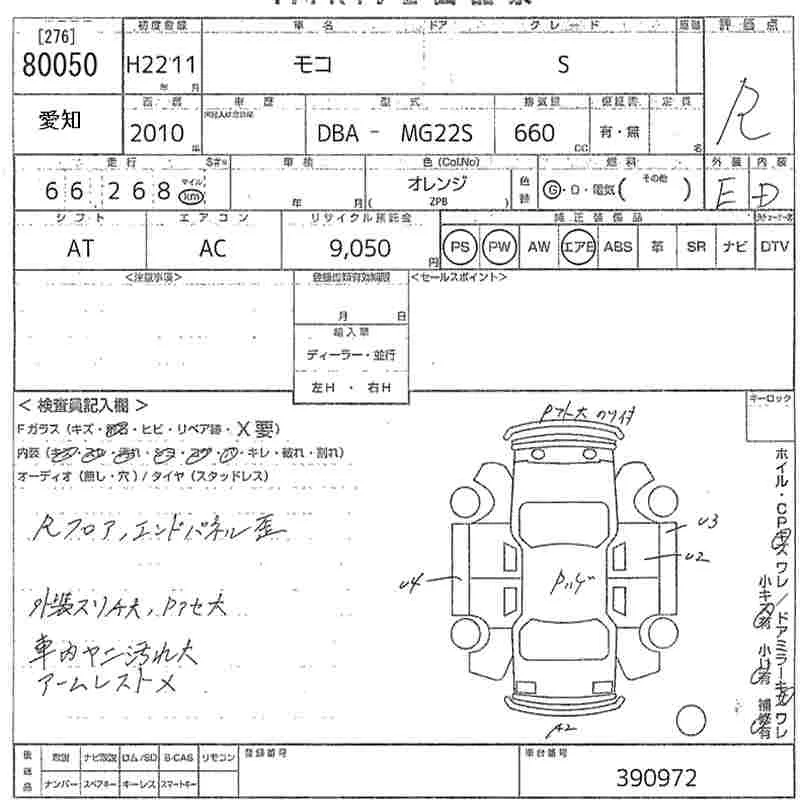 [276]
80050
初度登録
車名
ドア
グレード
評価点
H22 11
年 月
モコ
S
R
愛知
2010
年
車歴
型式
DBA - MG22S
排気量
660
CC
保証書
有・無
定員
名
走行
66,268
マイル
km
車検
年 月
色 (Col.No)
オレンジ
( ZPB )
色替
燃料
G・D・電気( その他 )
外装
内装
E D
シフト
エアコン
リサイクル預託金
純正装備品
AT
AC
9,050
円
PS PW AW エアB ABS 革 SR ナビ DTV
<注意事項>
登録書類有効期限
<セールスポイント>
月 日
輸入車
ディーラー・並行
左H ・ 右H
< 検査員記入欄 >
キーロック
Fガラス (キズ・飛石・ヒビ・リペア跡・X要)
内装 (キズ・スレ・汚れ・シミ・コゲ・穴・キレ・破れ・割れ)
オーディオ (無し・穴) / タイヤ (スタッドレス)
Rフロア,エンドパネル歪
外装スリ傷大,Pアセ大
車内ヤニ汚れ大
アームレストメ
U3
U2
U4
Pハゲ
A2
ホイル・CPキズ ワレ / ドアミラーキズ ワレ
小キズ有 小凹有 補修有
後送品
取説 ナビ取説 ロム/SD B-CAS リモコン
ナンバー スペアキー キーレス スマートキー
登録番号
車台番号
390972